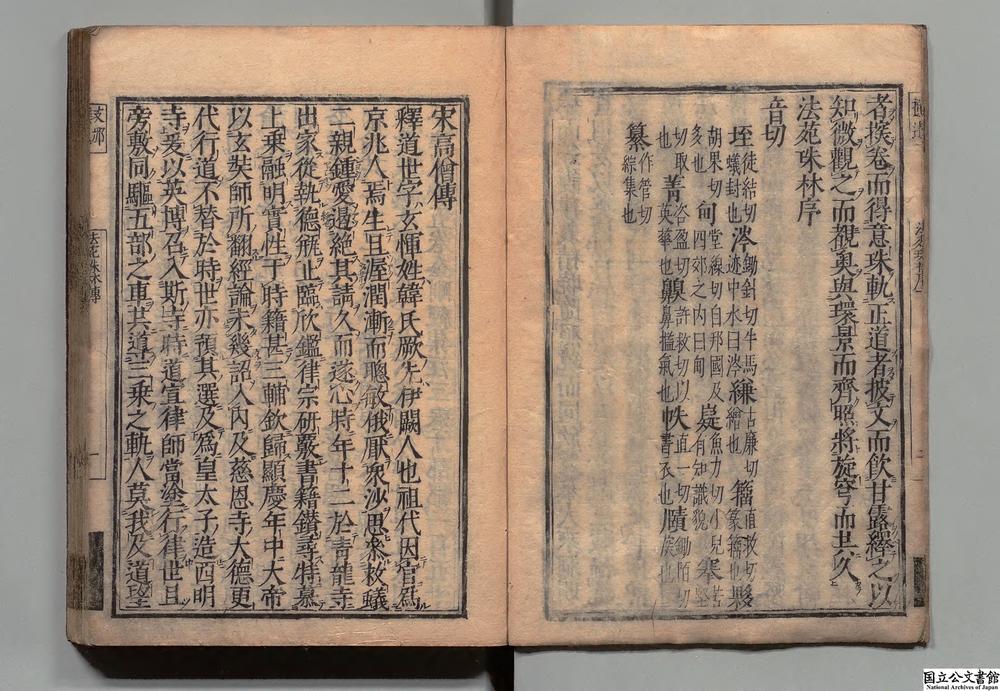 者撰卷而得意珠軌正道者披文而飲甘露繹之以
知微觀之而覩奥與環景而齊照將旋穹而共久
法苑珠林序
音切
垤徒結切蟻封也涔鋤針切牛馬迹中水曰涔縑古廉切繒也籀直救切篆籀也夥
胡果切多也甸堂緣切自那國及四郊之内曰甸嶷魚力切小兒有知識貌搴苦堅
切取也菁咨盈切英華也齅許救切以鼻搵氣也帙直一切書衣也賾鋤陌切也
纂作管切綜集也
宋高僧傳
釋道世字玄惲姓韓氏厥先伊闕人也祖代因官爲
京兆人焉生且渥潤漸而聰敏俄厭衆沙思參救蟻
二親鍾愛遏絶其請久而遂心時年十二於青龍寺
出家從執德瓶止臨欣鑑律宗研覈書籍鑚尋特慕
上乘融明實性于時籍甚三輔欽歸顯慶年中大帝
以玄奘師所翻經論未幾詔入内及慈恩寺大德更
代行道不替於時世亦預其選及爲皇太子造西明
寺爰以英博召入斯寺時道宣律師當塗行律世且
旁敷同驅五部之車共導三乘之軌人莫我及道望
支那
法苑珠林傳
一
国立公文書館
National Archives of Japan